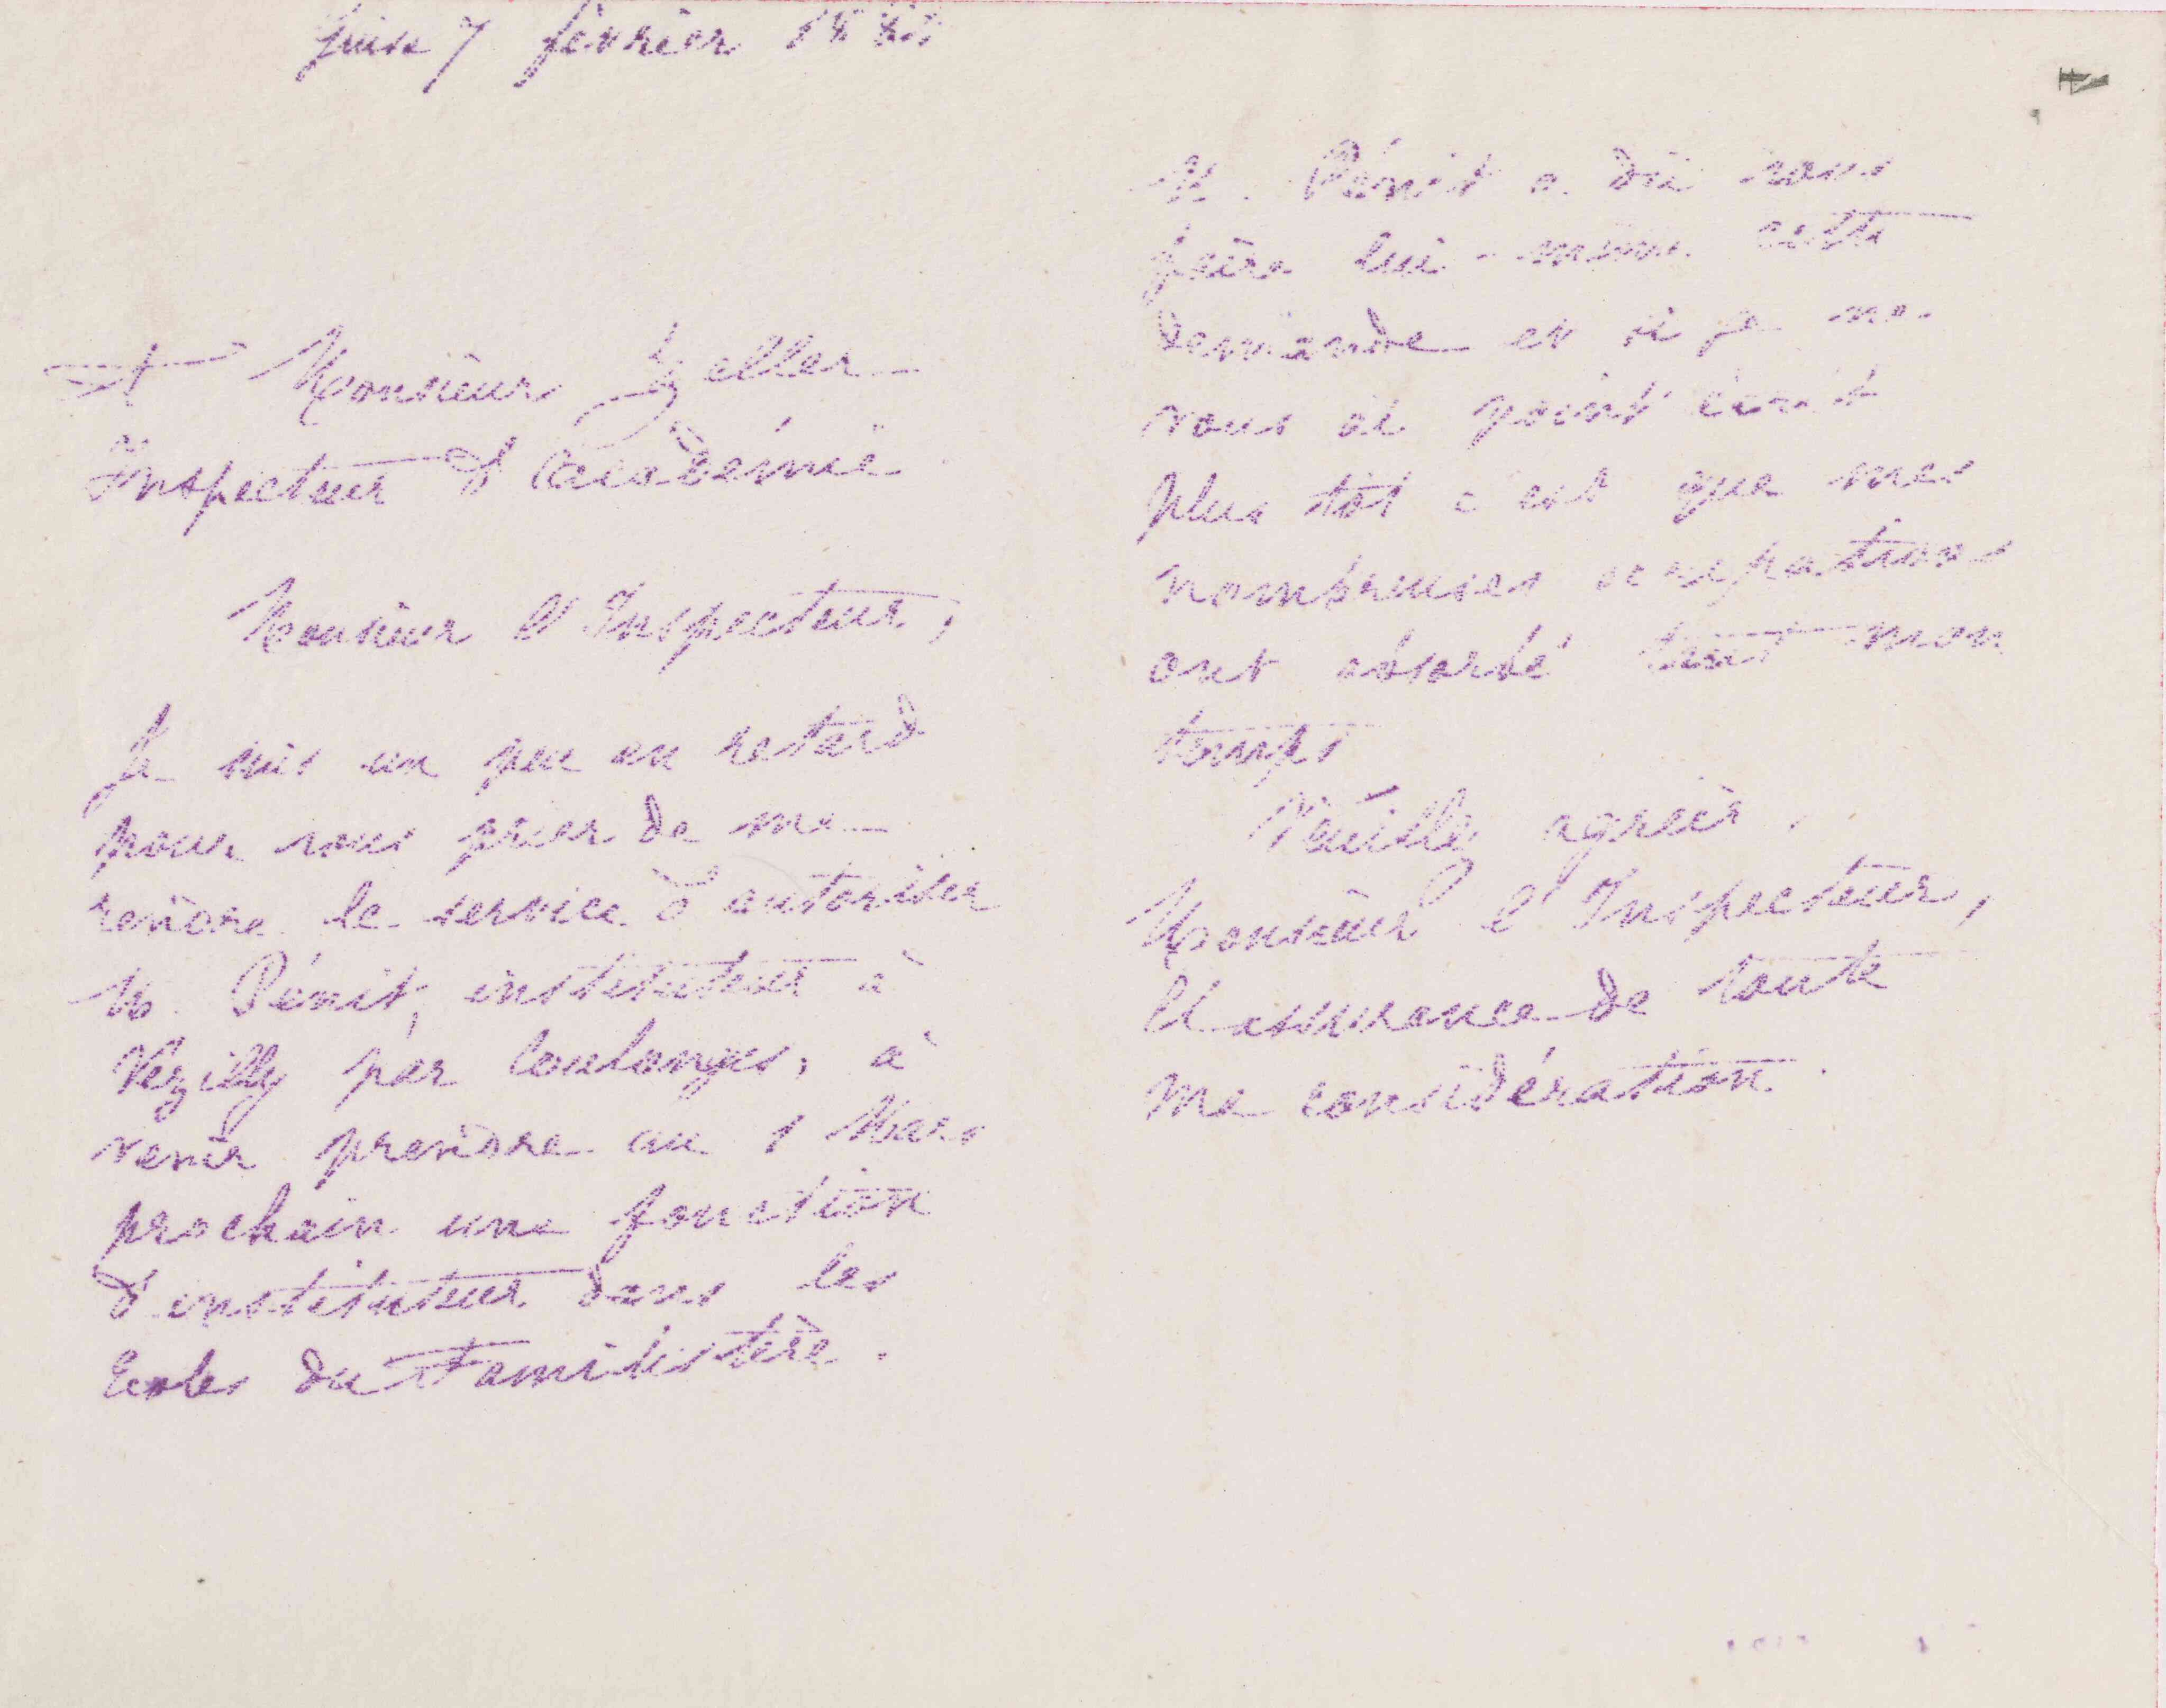 Guise 7 février 18
A Monsieur Zeller
Inspecteur d'Académie
Monsieur l'Inspecteur,
Je suis un peu en retard
pour vous prier de me
rendre le service d'autoriser
M. Pénit, instituteur à
Vézilly par Coulonges, à
venir prendre au 1 Mars
prochain une fonction
d'instituteur dans les
Ecoles du Familistère.
M. Pénit a dû vous
faire lui-même cette
demande et si je ne
vous ai point écrit
plus tôt c'est que mes
nombreuses occupations
ont absorbé tout mon
temps
Veuillez agréer,
Monsieur l'Inspecteur,
l'assurance de toute
ma considération.